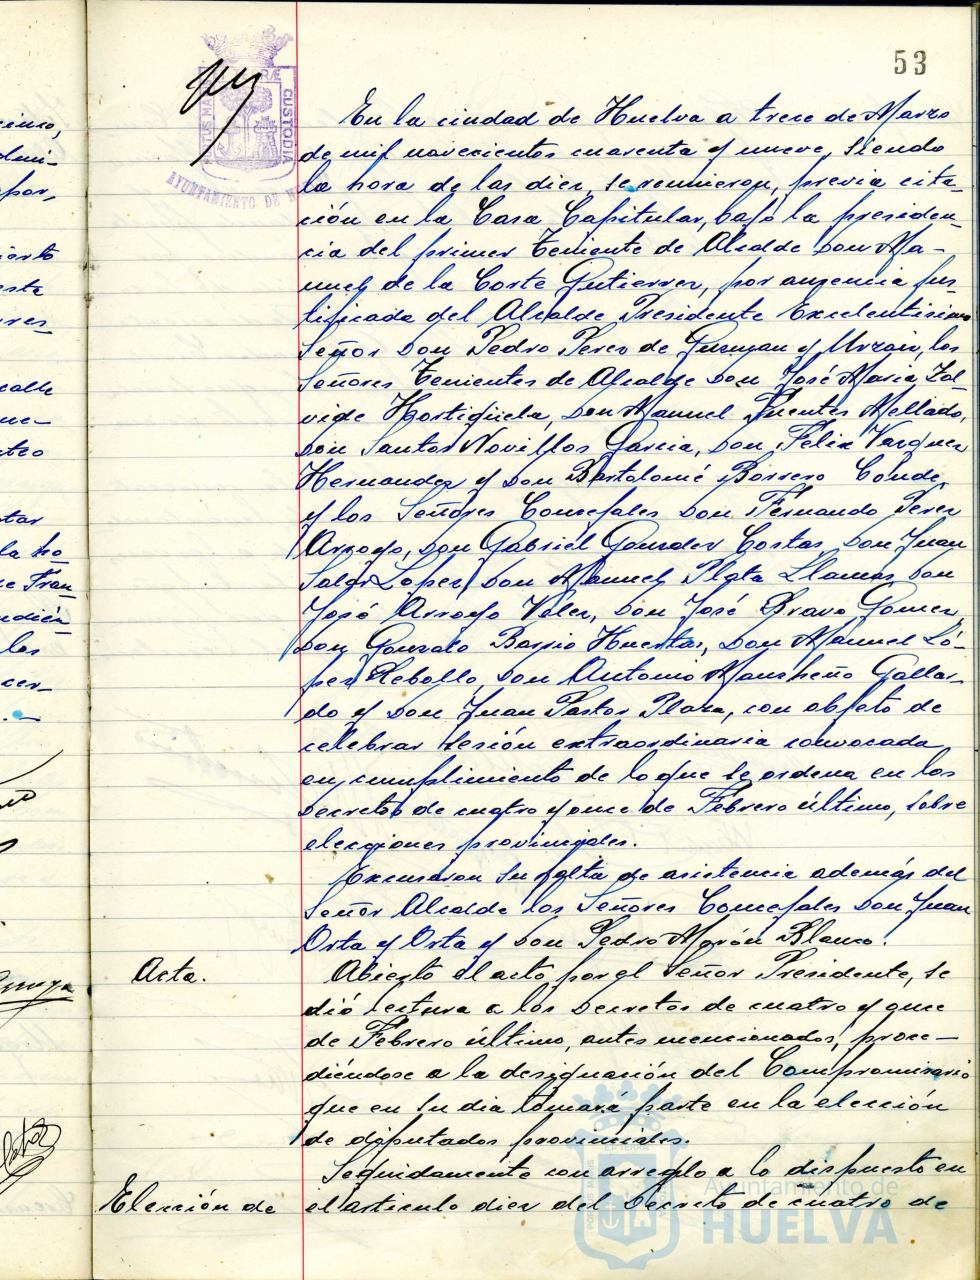 53
PORTUS MARIS ET TERRÆ CUSTODIA
AYUNTAMIENTO DE
En la ciudad de Huelva a trece de Marzo
de mil novecientos cuarenta y nueve, siendo
la hora de las diez, se reunieron, previa cita-
ción en la Casa Capitular, bajo la presiden-
cia del primer Teniente de Alcalde Don Ma-
nuel de la Corte Gutierrez, por ausencia jus-
tificada del Alcalde Presidente Excelentísimo
Señor Don Pedro Perez de Guzman y Urzaiz, los
Señores Tenientes de Alcalde Don José Maria Zal-
vide Hortigüela, Don Manuel Fuentes Mellado,
Don Santos Novillos Garcia, Don Felix Vazquez
Hernandez y Don Bartolomé Borrero Conde,
y los Señores Concejales Don Fernando Perez
Arroyo, Don Gabriel Gonzalez Costas, Don Juan
Salas Lopez, Don Manuel Plata Llamas, Don
José Arroyo Vélez, Don José Bravo Gomez,
Don Gonzalo Barrio Huertas, Don Manuel Ló-
pez Rebollo, Don Antonio Mancheño Gallar-
do y Don Juan Pastor Plaza, con objeto de
celebrar sesión extraordinaria convocada
en cumplimiento de lo que se ordena en los
Decretos de cuatro y once de Febrero último, sobre
elecciones provinciales.
Excusaron su falta de asistencia además del
Señor Alcalde los Señores Concejales Don Juan
Orta y Orta y Don Pedro Morón Blanco.
Acta.
Abierto el acto por el Señor Presidente, se
dió lectura a los Decretos de cuatro y once
de Febrero último, antes mencionados, proce-
diéndose a la designación del Compromisario
que en su dia tomará parte en la elección
de diputados provinciales.
Seguidamente con arreglo a lo dispuesto en
Elección de
el artículo diez del Decreto de cuatro de
Ayuntamiento de
HUELVA